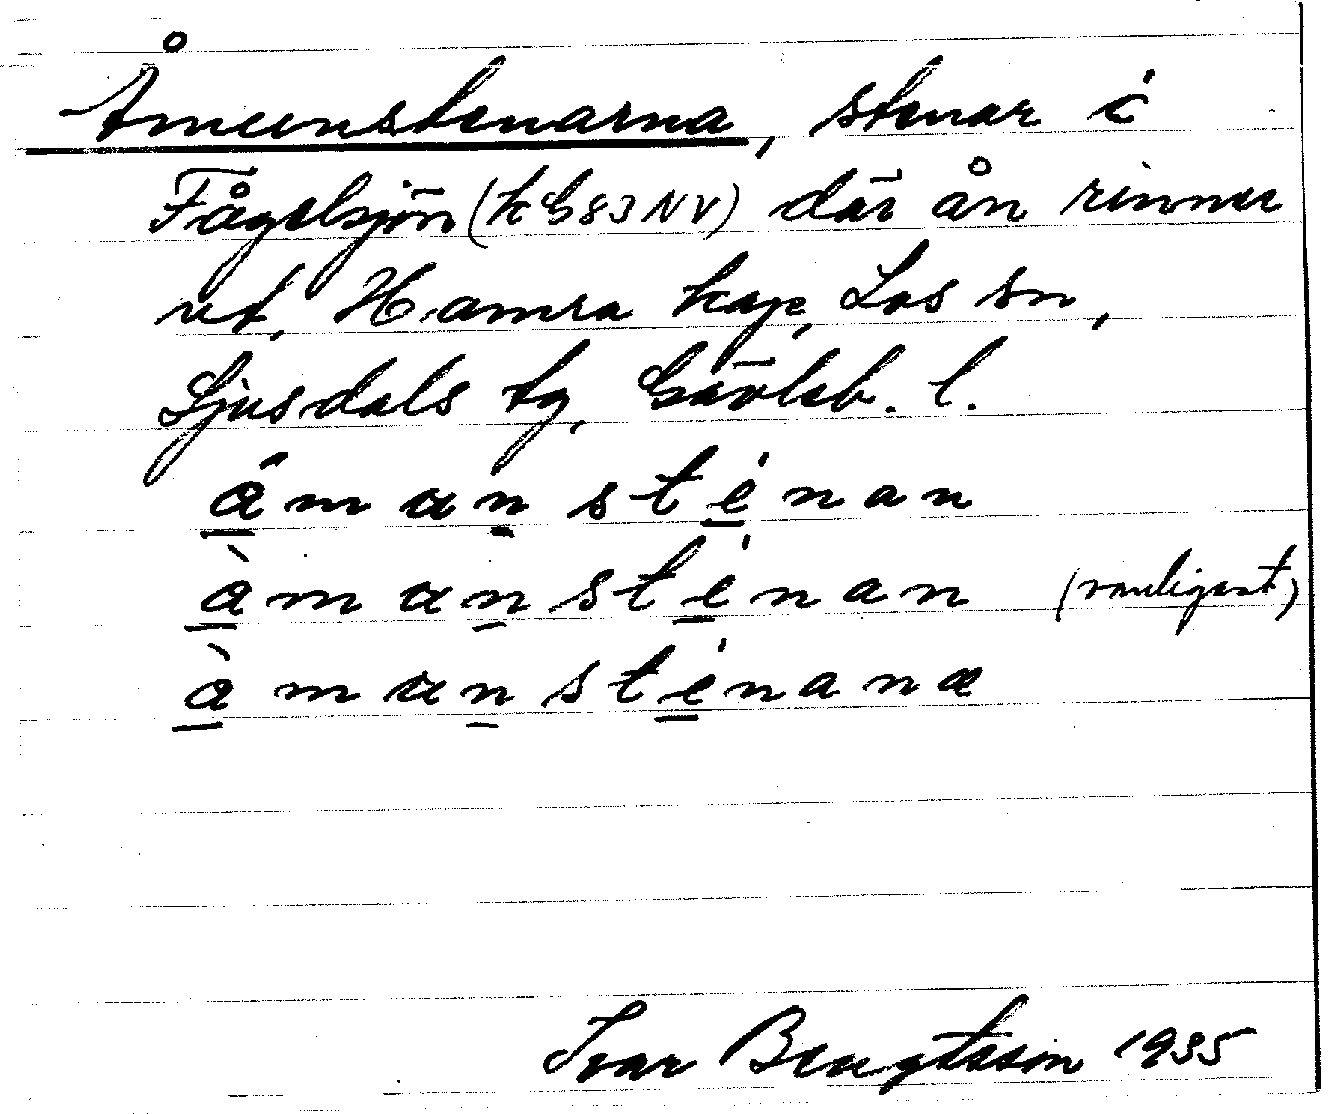 Åmunstenarna, stenar i
Fågelsjön (kG83NV) där ån rinner
ut, Hamra kap, Los sn,
Ljusdals tg, Gävleb. l.
ámansténan
àmansténan (vanligast)
àmansténanæ
Ivar Bengtsson 1935